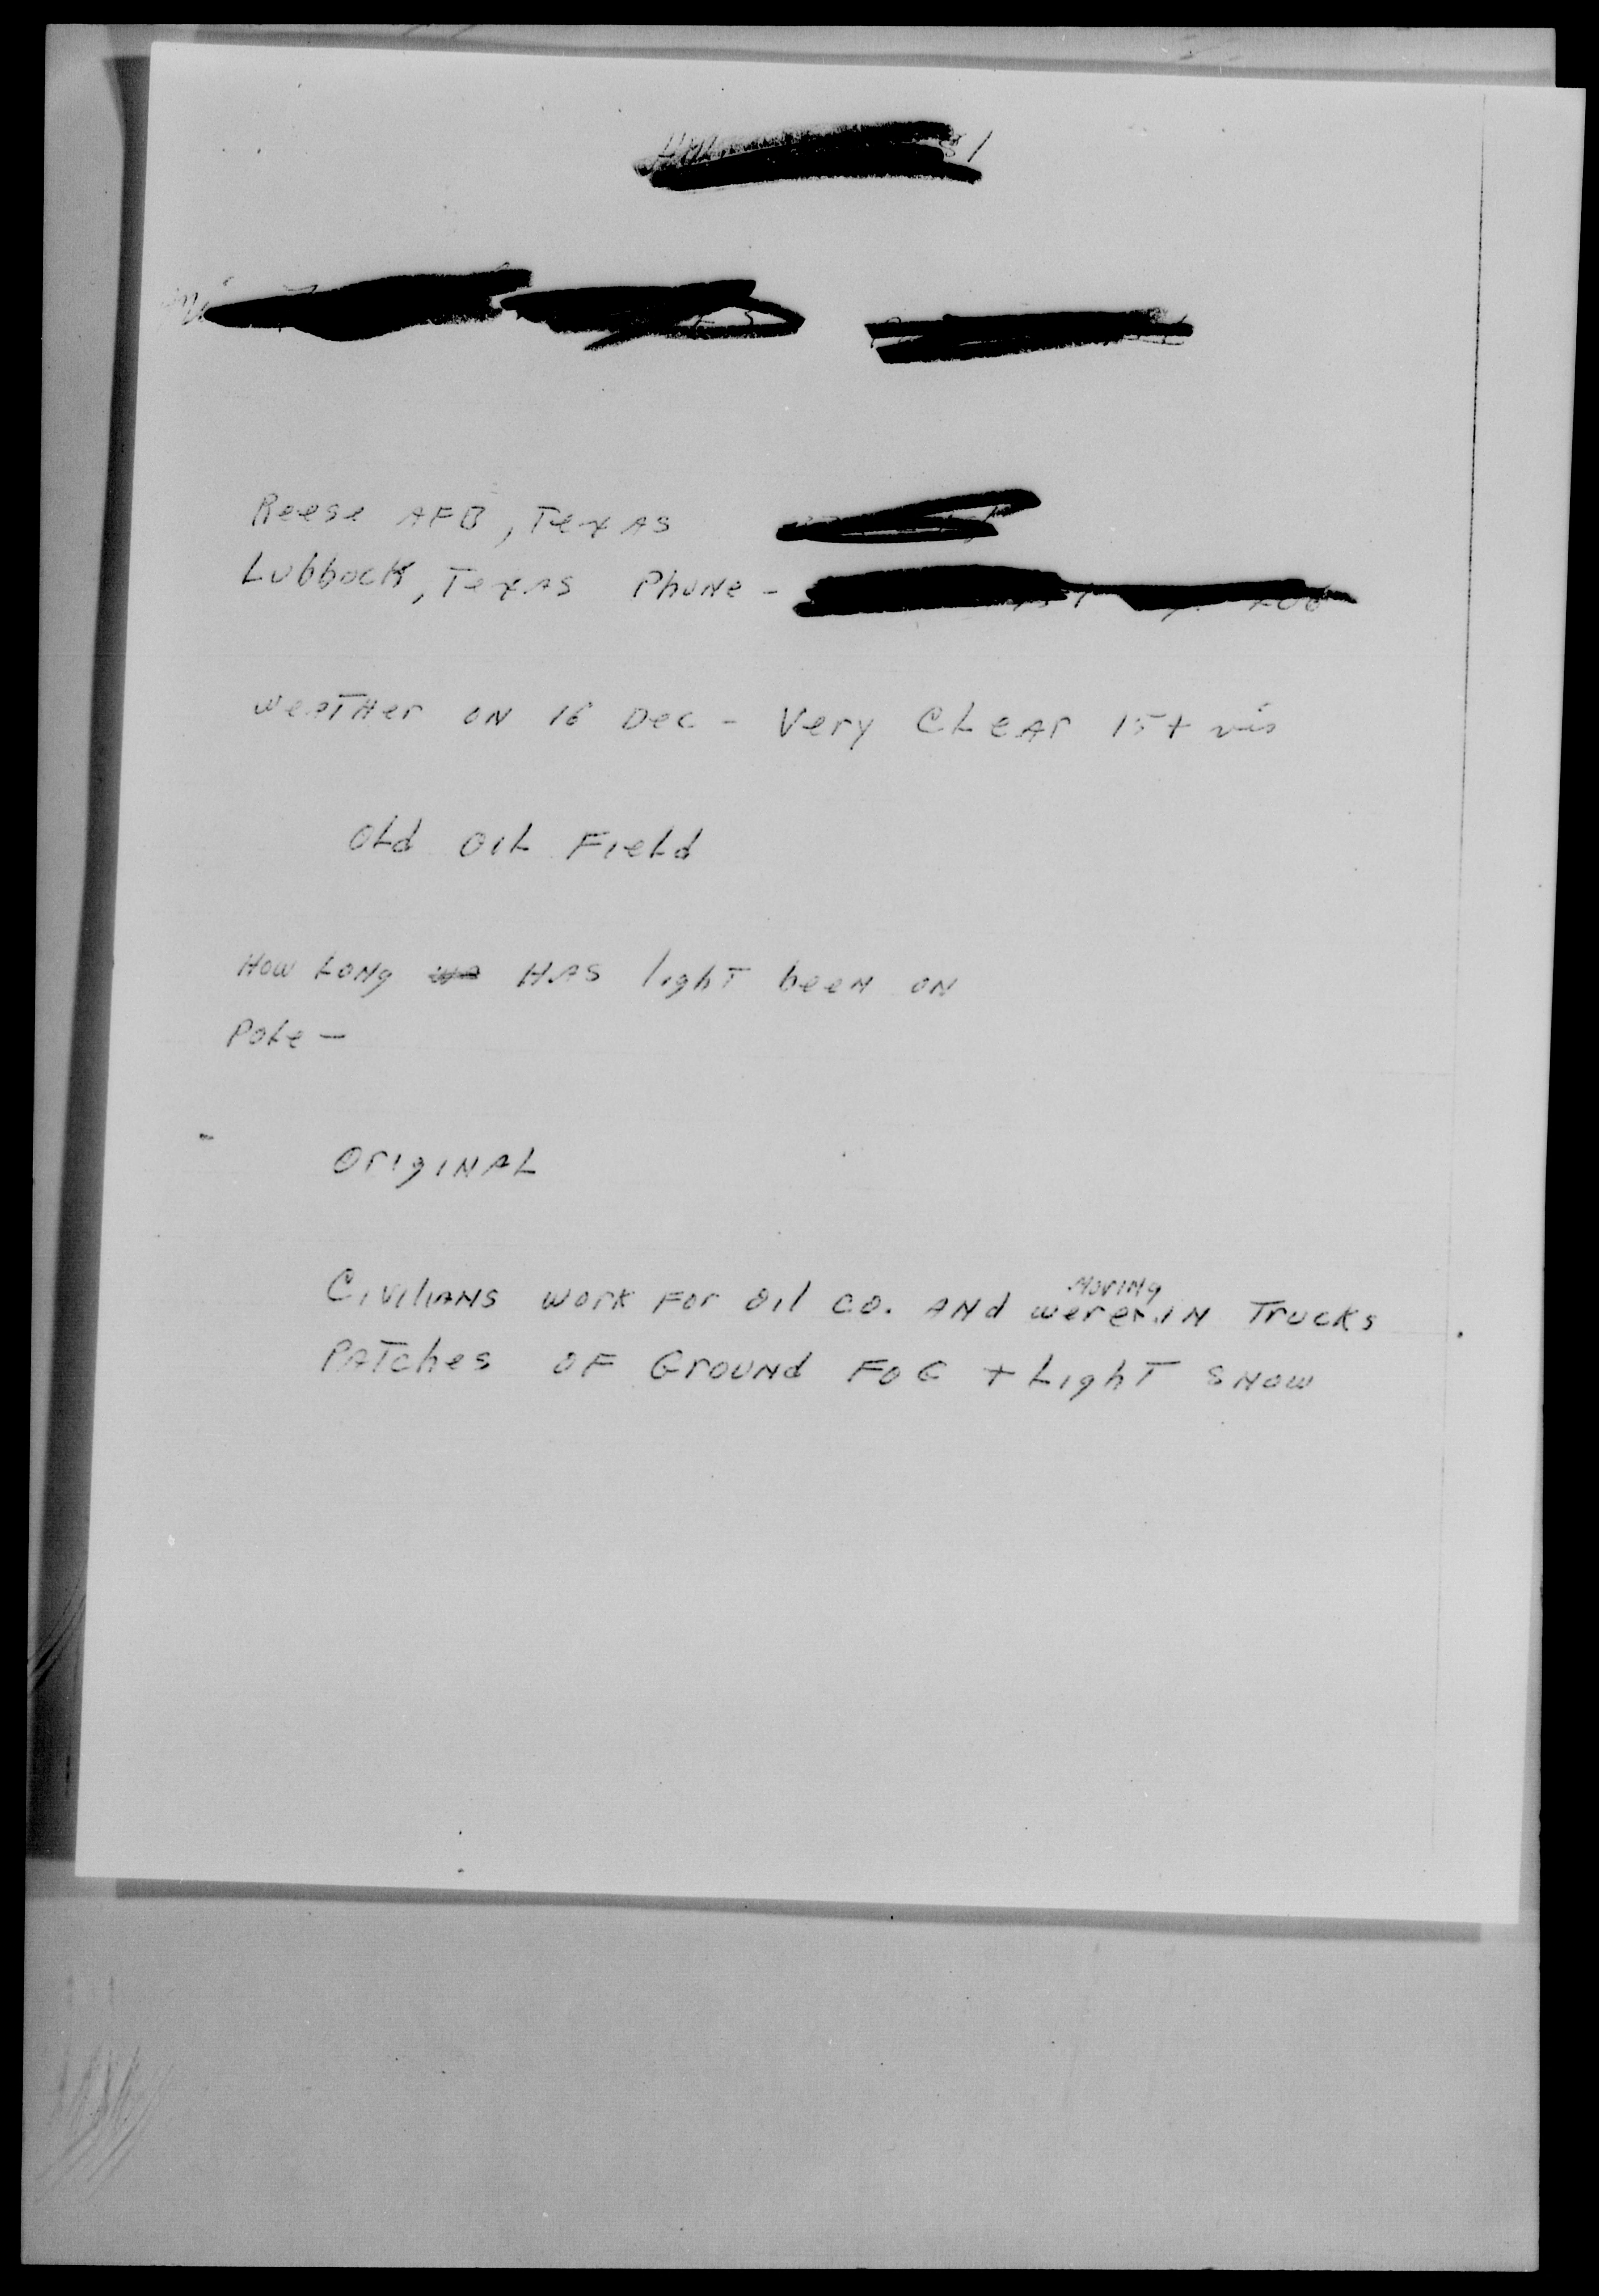 Reese AFB, Texas
Lubbock, Texas Phone -
Weather on 16 Dec - Very Clear 15+ vis
Old Oil Field
How Long Has light been on
Pole -
Original
Moving
Civilians work for oil co. and were in Trucks
Patches of Ground Fog + Light Snow